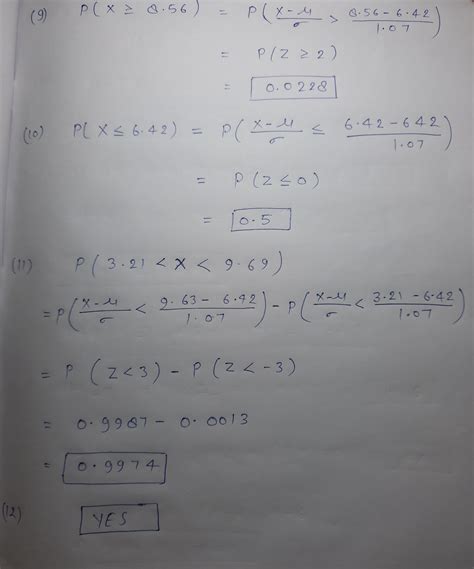 (9) P(X ≥ 8.56) = P(X-μ/σ > 8.56-6.42/1.07)
= P(Z ≥ 2)
= 0.0228
(10) P(X ≤ 6.42) = P(X-μ/σ ≤ 6.42-642/1.07)
= P(Z ≤ 0)
= 0.5
(11) P(3.21 < X < 9.69)
= P(X-μ/σ < 9.63-6.42/1.07) - P(X-μ/σ < 3.21-6.42/1.07)
= P(Z<3) - P(Z<-3)
= 0.9987 - 0.0013
= 0.9974
(12) YES